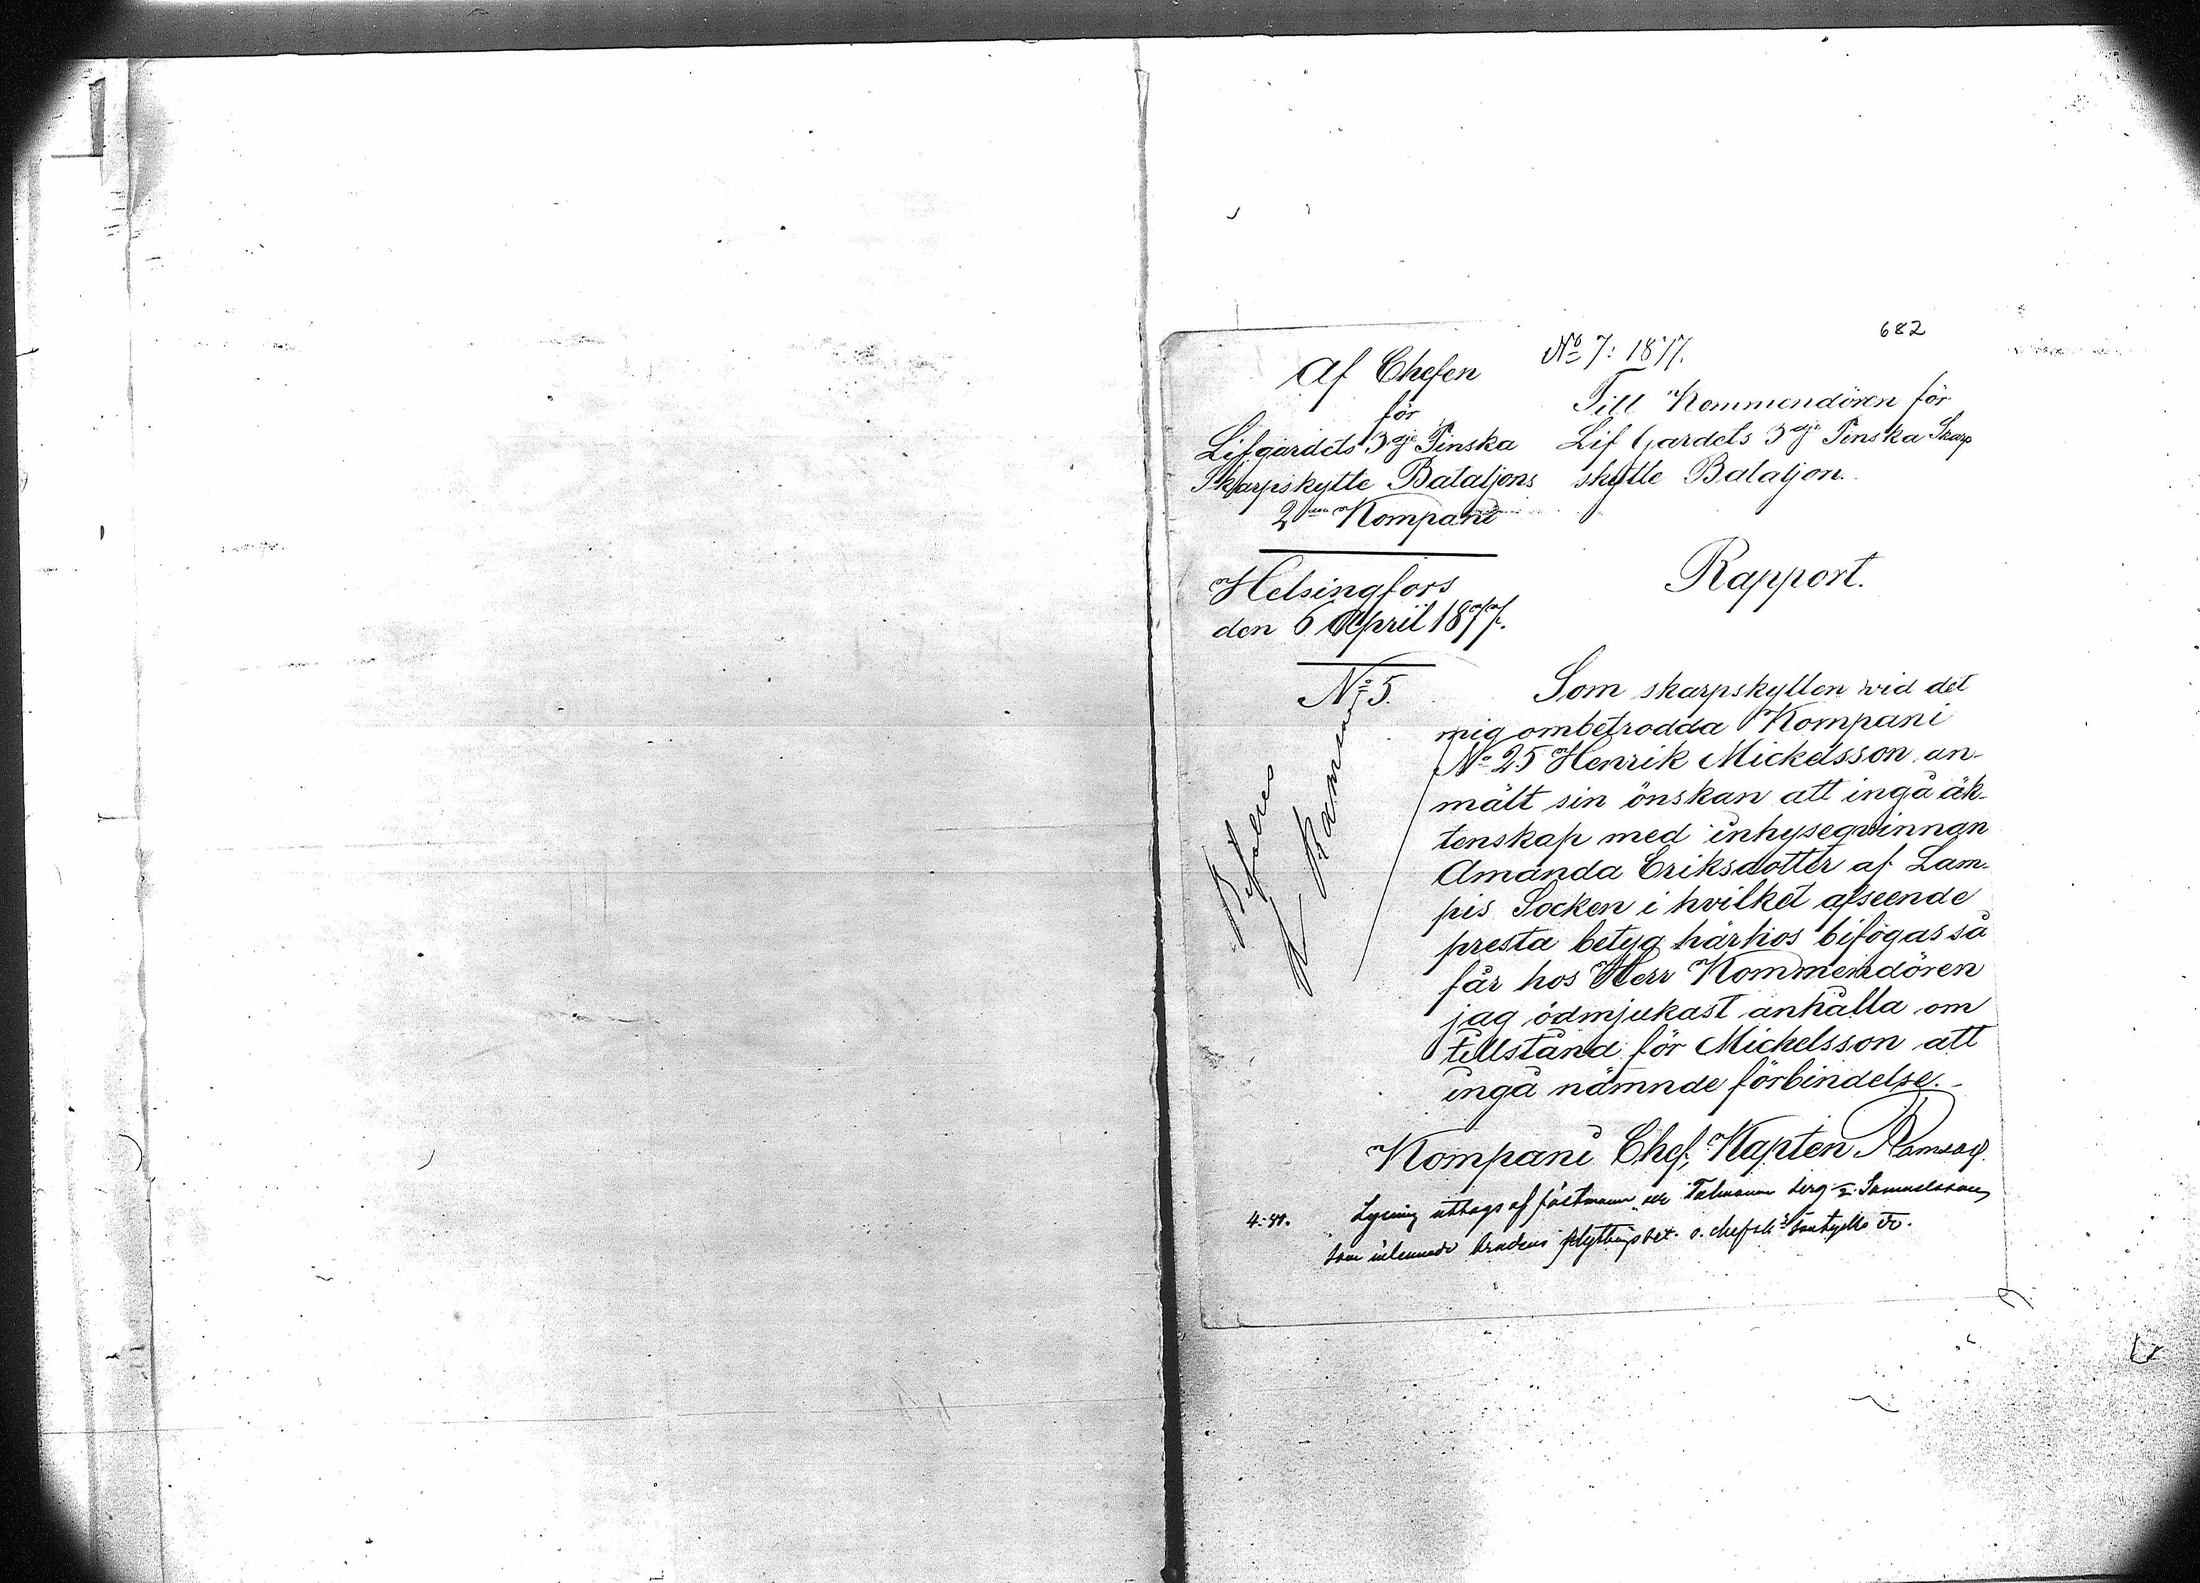 682
No 7: 1877.
Af Chefen
för
Lifgardets 3dje Finska
Skarpskytte Bataljons
2dra Kompani
Helsingfors
den 6 April 1877.
No 5.
Till Kommendören för
Lif Gardets 3dje Finska Skarp
skytte Bataljon.
Rapport.
Som skarpskytten vid det
mig ombetrodda Kompani
No 25 Henrik Mickelsson an-
mält sin önskan att ingå äk-
tenskap med inhyseqvinnan
Amanda Eriksdotter af Lam-
pis Socken i hvilket afseende
presta betyg härhos bifogas så
får hos Herr Kommendören
jag ödmjukast anhålla om
tillstånd för Mickelsson att
ingå nämnde förbindelse.
Kompani Chef, Kapten Ramsay.
Bifalles
Lysning uttogs af fästmann
som inlemnade brudens flyttningsbet. o. chefens samtycke